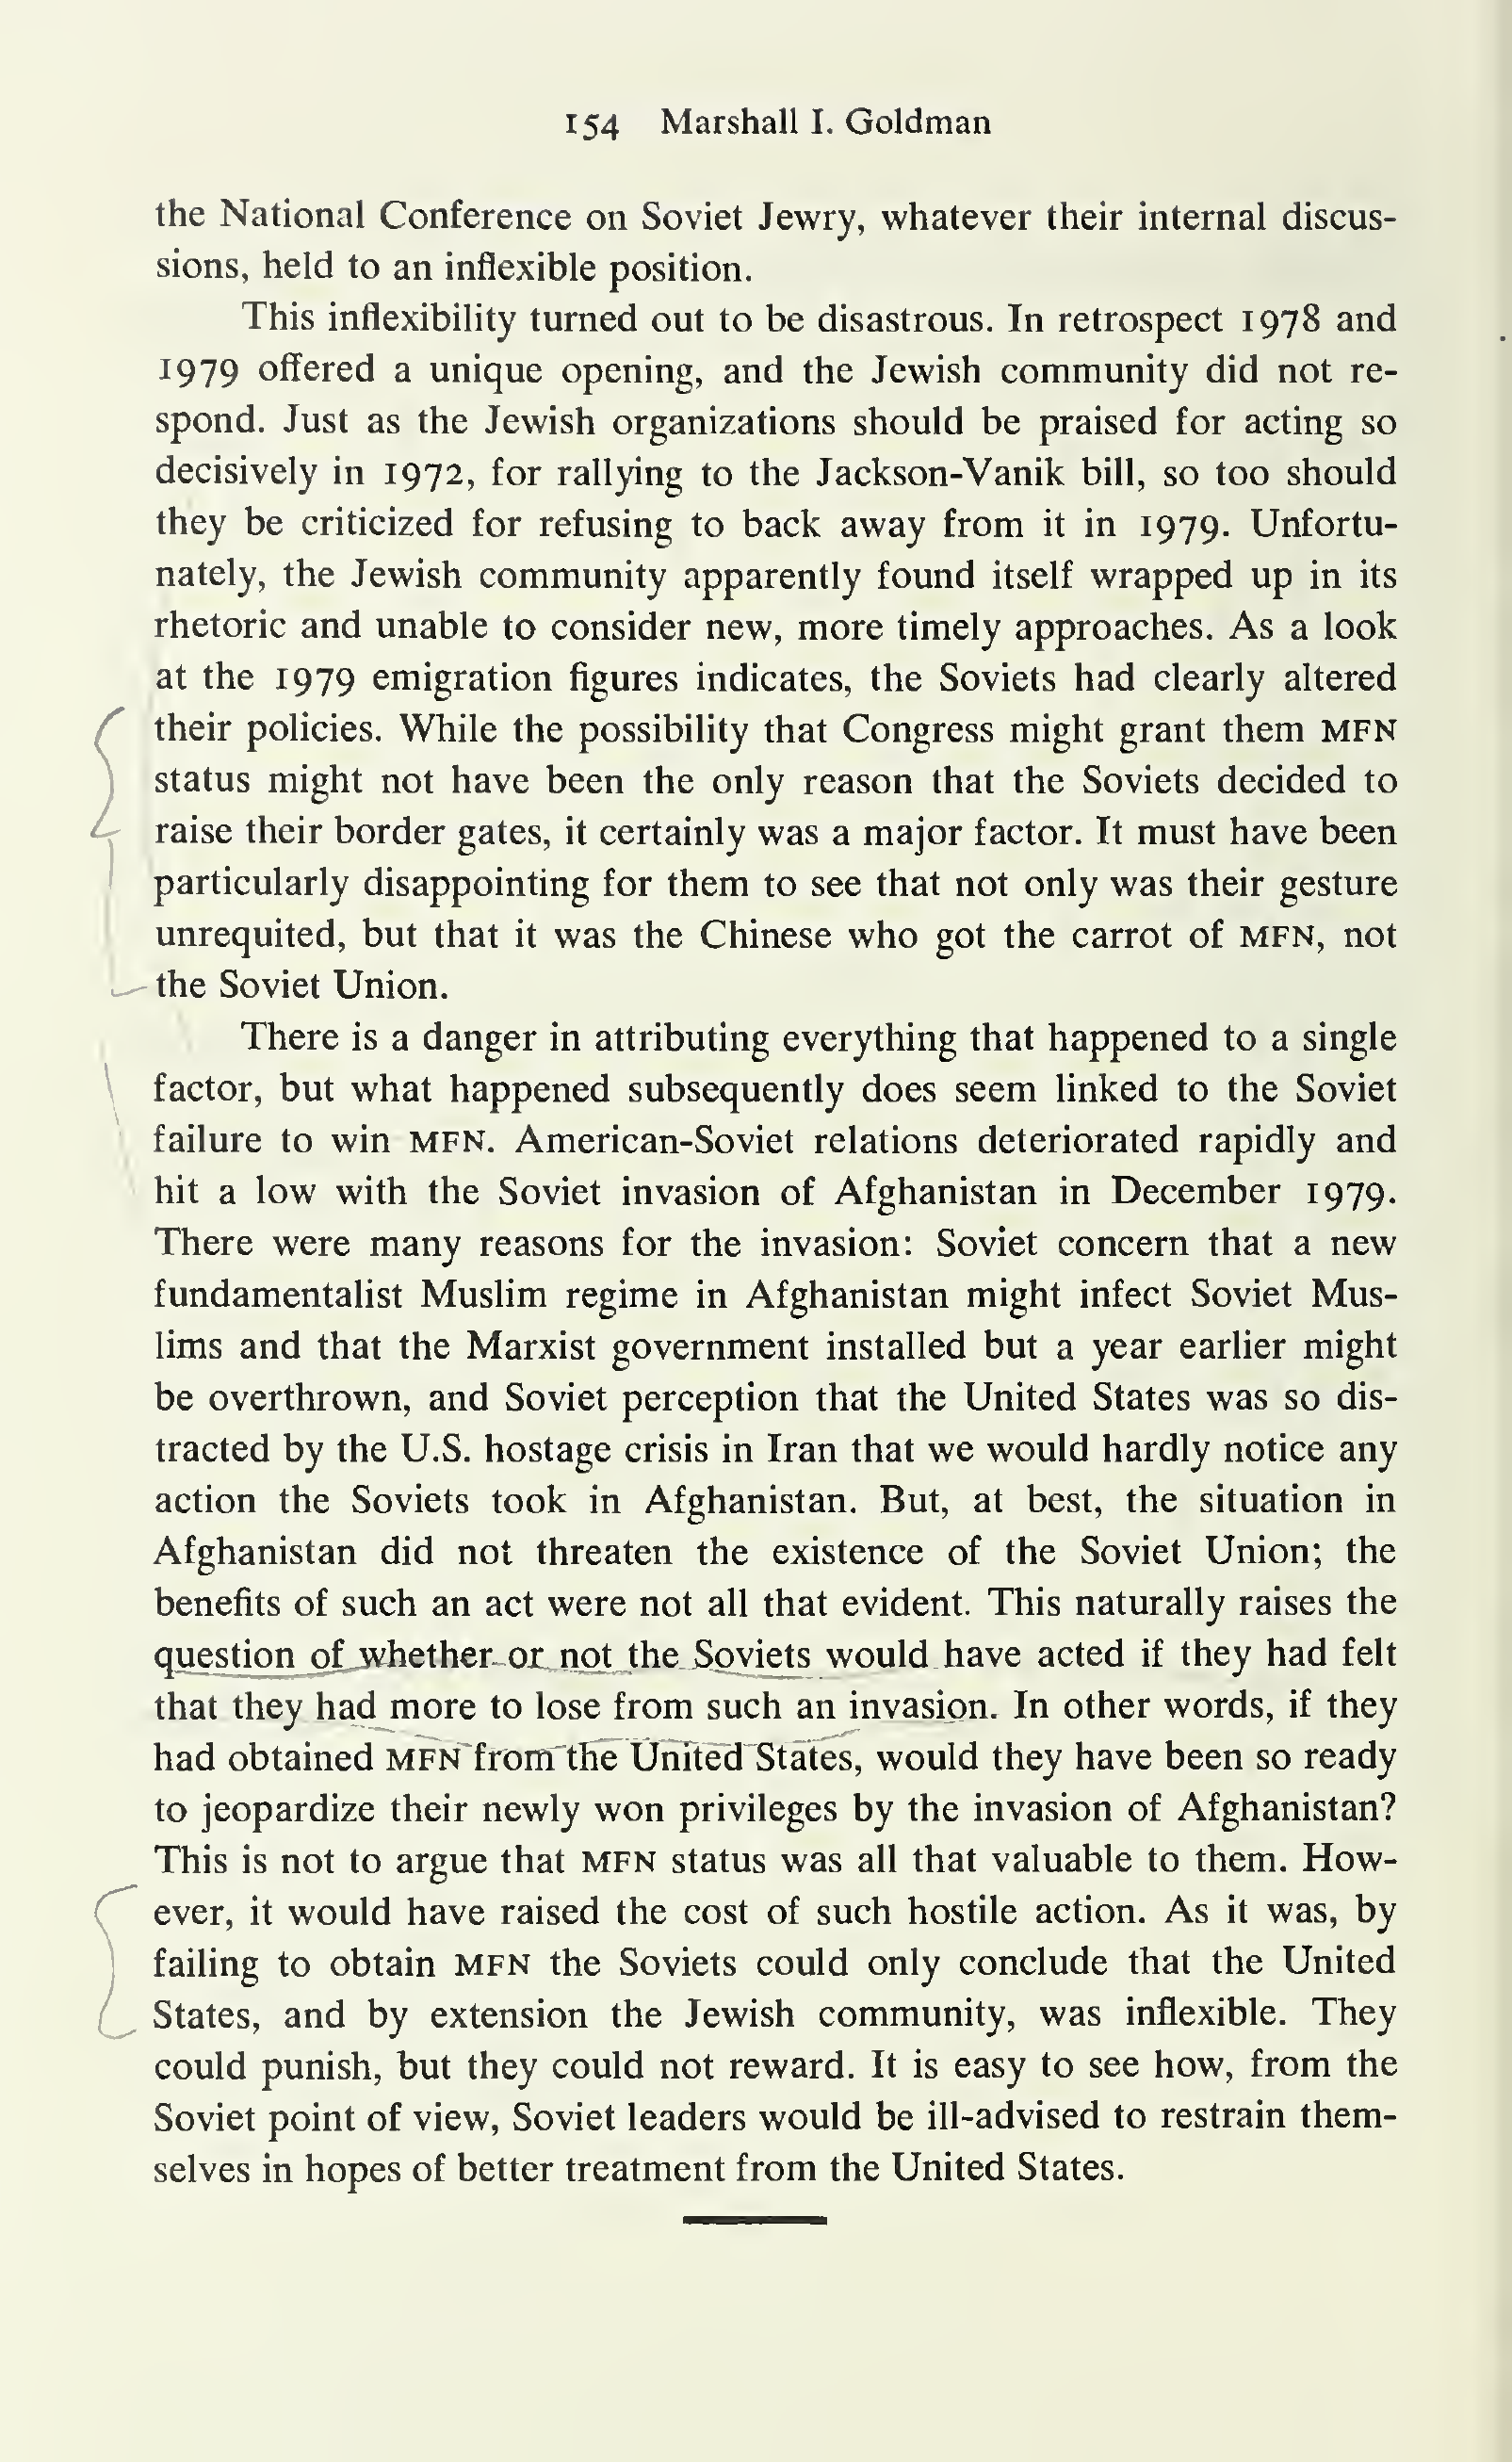 154 Marshall I. Goldman
the National Conference on Soviet Jewry, whatever their internal discus-
sions, held to an inflexible position.
This inflexibility turned out to be disastrous. In retrospect 1978 and
1979 offered a unique opening, and the Jewish community did not re-
spond. Just as the Jewish organizations should be praised for acting so
decisively in 1972, for rallying to the Jackson-Vanik bill, so too should
they be criticized for refusing to back away from it in 1979. Unfortu-
nately, the Jewish community apparently found itself wrapped up in its
rhetoric and unable to consider new, more timely approaches. As a look
at the 1979 emigration figures indicates, the Soviets had clearly altered
their policies. While the possibility that Congress might grant them MFN
status might not have been the only reason that the Soviets decided to
raise their border gates, it certainly was a major factor. It must have been
particularly disappointing for them to see that not only was their gesture
unrequited, but that it was the Chinese who got the carrot of MFN, not
the Soviet Union.
There is a danger in attributing everything that happened to a single
factor, but what happened subsequently does seem linked to the Soviet
failure to win MFN. American-Soviet relations deteriorated rapidly and
hit a low with the Soviet invasion of Afghanistan in December 1979.
There were many reasons for the invasion: Soviet concern that a new
fundamentalist Muslim regime in Afghanistan might infect Soviet Mus-
lims and that the Marxist government installed but a year earlier might
be overthrown, and Soviet perception that the United States was so dis-
tracted by the U.S. hostage crisis in Iran that we would hardly notice any
action the Soviets took in Afghanistan. But, at best, the situation in
Afghanistan did not threaten the existence of the Soviet Union; the
benefits of such an act were not all that evident. This naturally raises the
question of whether or not the Soviets would have acted if they had felt
that they had more to lose from such an invasion. In other words, if they
had obtained MFN from the United States, would they have been so ready
to jeopardize their newly won privileges by the invasion of Afghanistan?
This is not to argue that MFN status was all that valuable to them. How-
ever, it would have raised the cost of such hostile action. As it was, by
failing to obtain MFN the Soviets could only conclude that the United
States, and by extension the Jewish community, was inflexible. They
could punish, but they could not reward. It is easy to see how, from the
Soviet point of view, Soviet leaders would be ill-advised to restrain them-
selves in hopes of better treatment from the United States.